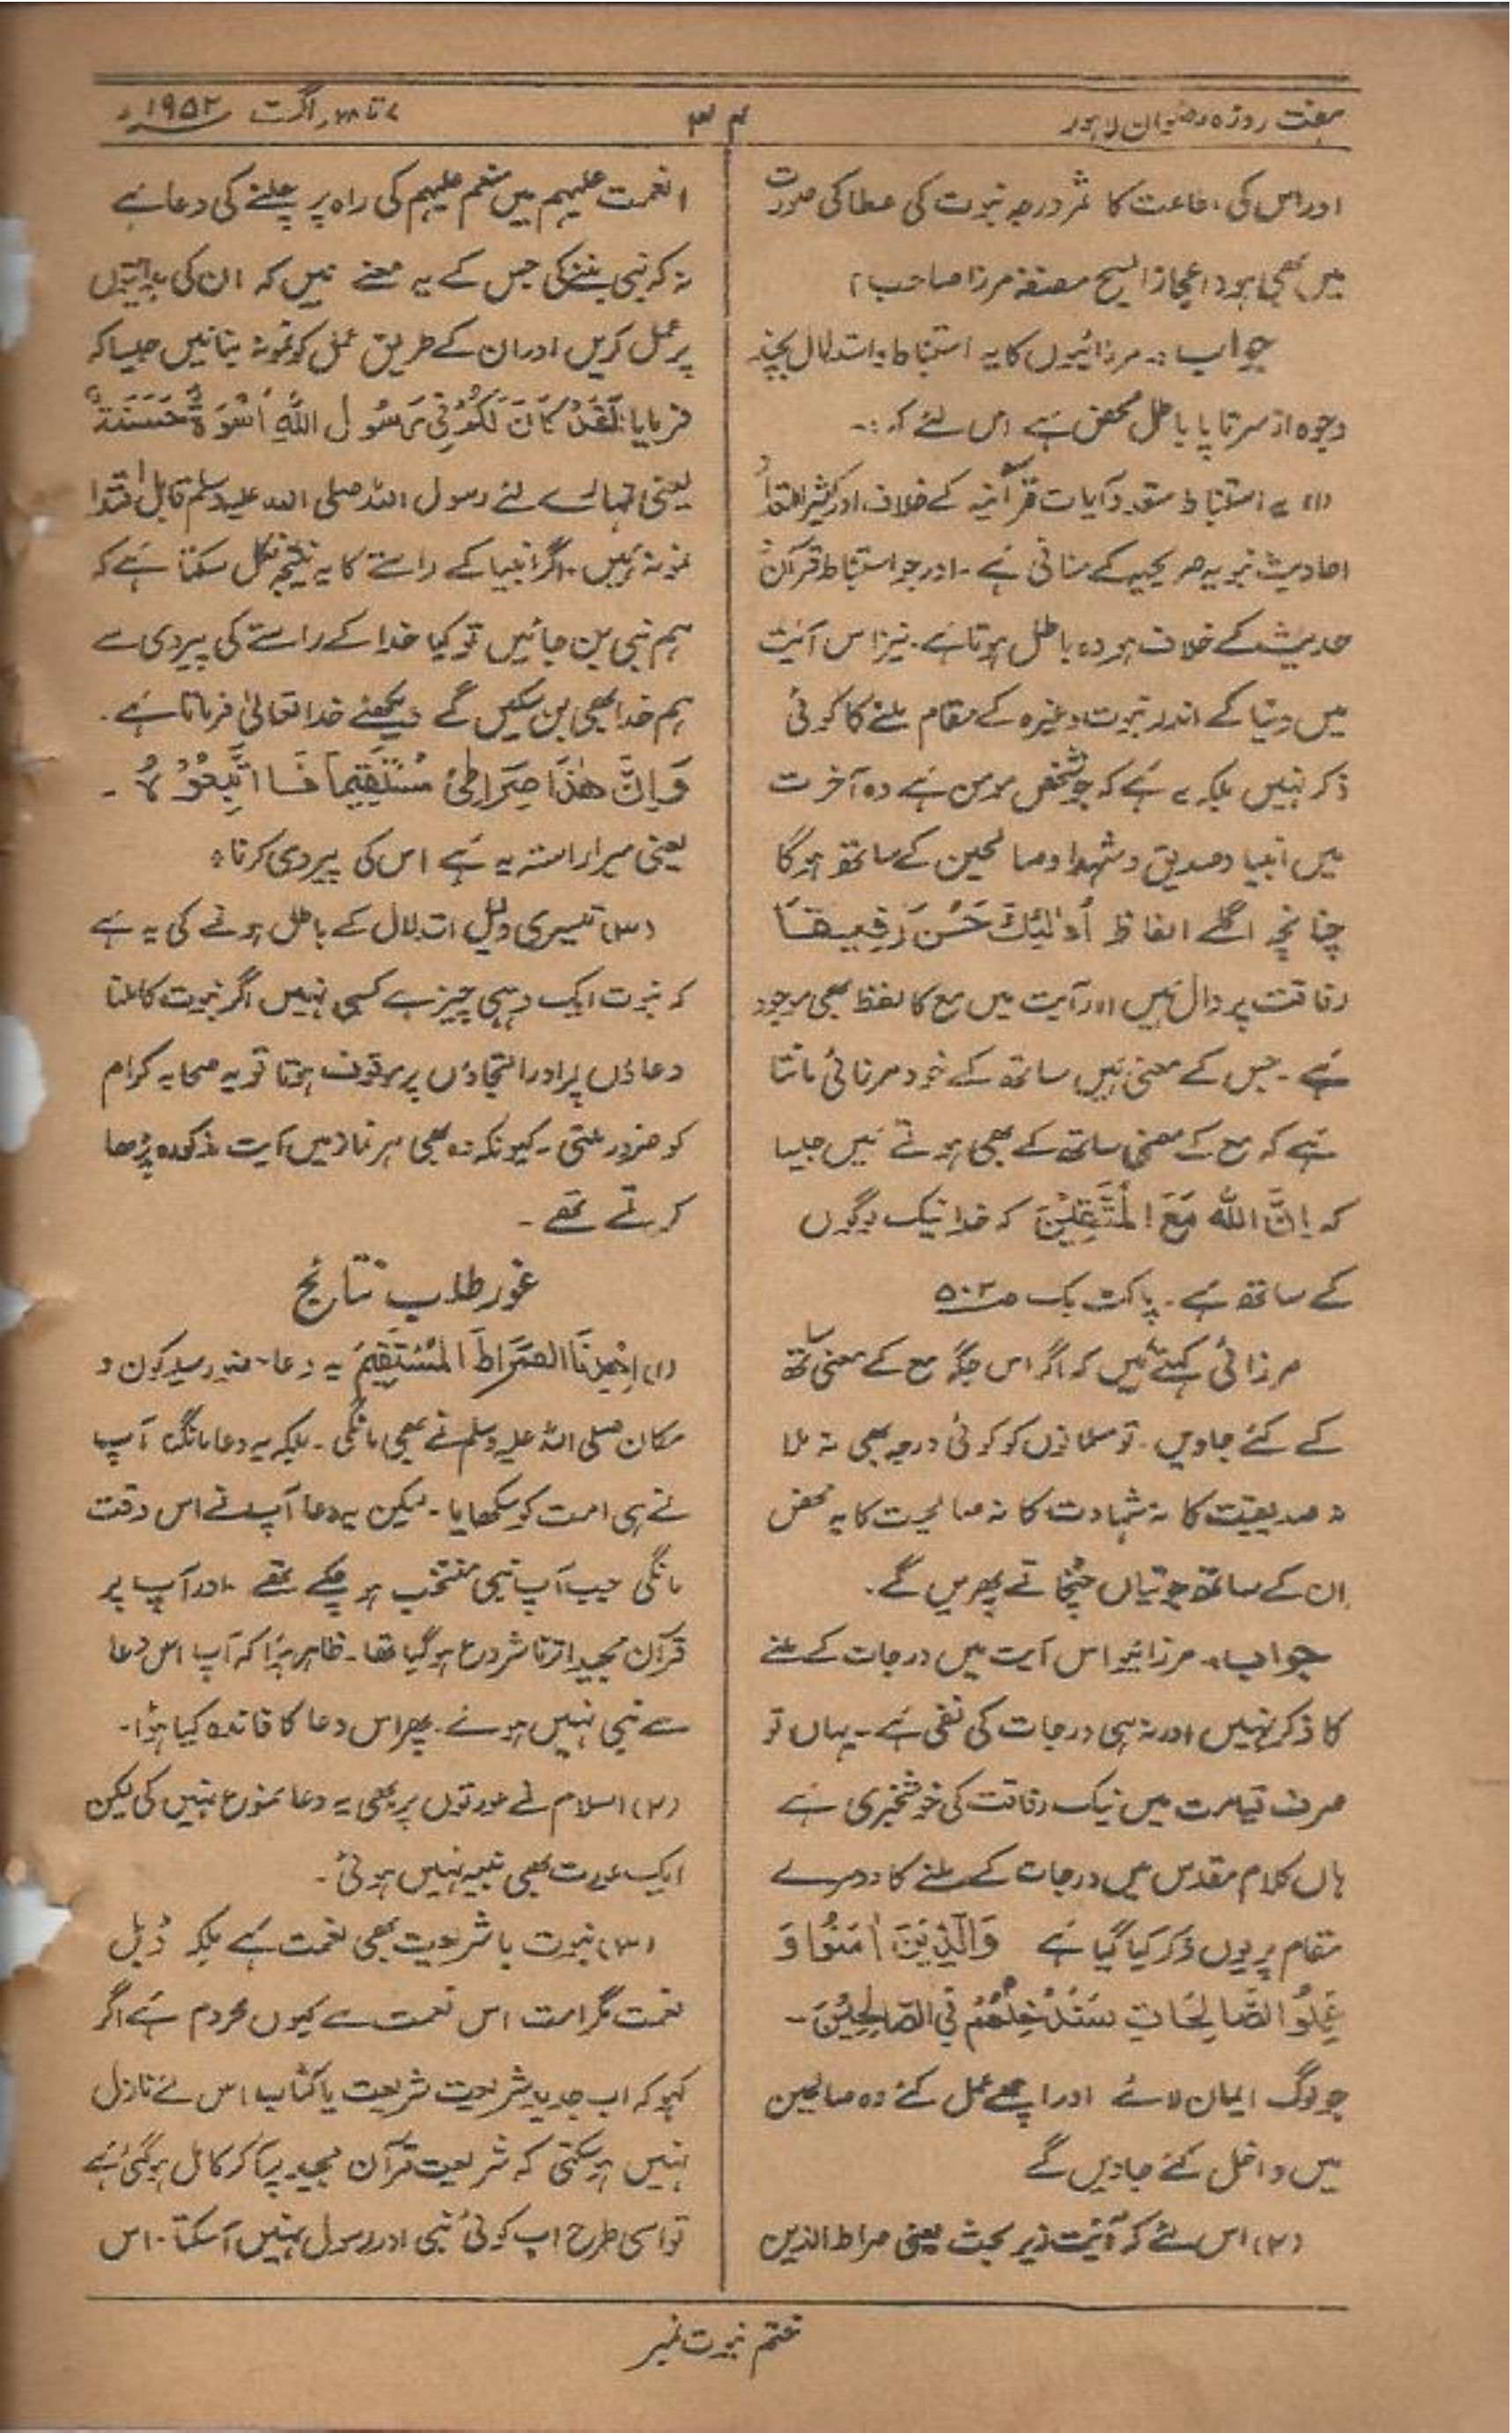 ہفت روزہ رضوان لاہور
۳۴
۷ تا ۲۸ اگست ۱۹۵۲ء
اور اس کی اطاعت کا ثمر درجہ نبوت کی عطا کی صورت
میں بھی ہو (اعجاز المسیح مصنفہ مرزا صاحب)
جواب :۔ مرزائیوں کا یہ استنباط و استدلال بچند
وجوہ از سر تا پا باطل محض ہے اس لئے کہ :۔
(۱) یہ استنباط متعدد آیات قرآنیہ کے خلاف، اور کثیر التعداد
احادیث نبویہ صریحہ کے منافی ہے ۔ اور جو استنباط قرآن
حدیث کے خلاف ہو وہ باطل ہوتا ہے ۔ نیز اس آئیت
میں دنیا کے اندر نبوت وغیرہ کے مقام ملنے کا کوئی
ذکر نہیں بلکہ یہ ہے کہ جو شخص مومن ہے وہ آخرت
میں انبیا و صدیق و شہدا و صالحین کے ساتھ ہو گا
چنانچہ اگلے الفاظ اُولٰئِكَ حَسُنَ رَفِيقًا
رفاقت پر دال ہیں اور آیت میں مع کا لفظ بھی موجود
ہے ۔ جس کے معنی ہیں ساتھ کے خود مرزائی مانتا
ہے کہ مع کے معنی ساتھ کے بھی ہوتے ہیں جیسا
کہ اِنَّ اللّٰهَ مَعَ الْمُتَّقِيْنَ کہ خدا نیک لوگوں
کے ساتھ ہے ۔ پاکٹ بک صـ ۵۰۲
مرزائی کہتے ہیں کہ اگر اس جگہ مع کے معنی ساتھ
کے کئے جاویں ۔ تو مسلمانوں کو کوئی درجہ بھی نہ ملا
نہ صدیقیت کا نہ شہادت کا نہ صالحیت کا یہ محض
ان کے ساتھ جوتیاں چٹخاتے پھریں گے ۔
جواب :۔ مرزائیو اس آیت میں درجات کے ملنے
کا ذکر نہیں اور نہ ہی درجات کی نفی ہے ۔ یہاں تو
صرف قیامت میں نیک رفاقت کی خوشخبری ہے
ہاں کلام مقدس میں درجات کے ملنے کا دوسرے
مقام پر یوں ذکر کیا گیا ہے وَالَّذِيْنَ اٰمَنُوْا وَ
عَمِلُوا الصَّالِحَاتِ سَنُدْخِلُهُمْ فِي الصَّالِحِيْنَ ۔
جو لوگ ایمان لائے اور اچھے عمل کئے وہ صالحین
میں داخل کئے جاویں گے
(۲) اس لئے کہ آئیت زیر بحث یعنی صراط الذین
انعمت علیہم میں منعم علیہم کی راہ پر چلنے کی دعا ہے
نہ کہ نبی بننے کی جس کے یہ معنے ہیں کہ ان کی ہدایتوں
پر عمل کریں اور ان کے طریق عمل کو نمونہ بنائیں جیسا کہ
فرمایا: لَقَدْ كَانَ لَكُمْ فِي رَسُولِ اللّٰهِ اُسْوَةٌ حَسَنَةٌ
یعنی تمہارے لئے رسول اللہ صلی اللہ علیہ وسلم قابل اقتدا
نمونہ ہیں ۔ اگر انبیا کے راستے کا یہ نتیجہ نکل سکتا ہے کہ
ہم نبی بن جائیں تو کیا خدا کے راستے کی پیروی سے
ہم خدا بھی بن سکیں گے دیکھئے خدا تعالیٰ فرماتا ہے ۔
وَاِنَّ هٰذَا صِرَاطِيْ مُسْتَقِيْمًا فَاتَّبِعُوْهُ ۔
یعنی میرا راستہ یہ ہے اس کی پیروی کرنا ÷
(۳) تیسری دلیل استدلال کے باطل ہونے کی یہ ہے
کہ نبوت ایک وہبی چیز ہے کسبی نہیں اگر نبوت کا ملنا
دعاؤں پر اور التجاؤں پر موقوف ہوتا تو یہ صحابہ کرام
کو ضرور ملتی ۔ کیونکہ وہ بھی ہر نماز میں آیت مذکورہ پڑھا
کرتے تھے ۔
غور طلب نتائج
(۱) اِهْدِنَا الصِّرَاطَ الْمُسْتَقِيْمَ یہ دعا حضور سید کون و
مکان صلی اللہ علیہ وسلم نے بھی مانگی ۔ بلکہ یہ دعا مانگنا آپ
نے ہی امت کو سکھایا ۔ لیکن یہ دعا آپ نے اس وقت
مانگی جب آپ نبی منتخب ہو چکے تھے ۔ اور آپ پر
قرآن مجید اترنا شروع ہو گیا تھا ۔ ظاہر ہؤا کہ آپ اس دعا
سے نبی نہیں ہوئے ۔ پھر اس دعا کا فائدہ کیا ہؤا ۔
(۲) اسلام نے عورتوں پر بھی یہ دعا ممنوع نہیں کی لیکن
ایک عورت بھی نبیہ نہیں ہوئی ۔
(۳) نبوت با شریعت بھی نعمت ہے بلکہ ڈبل
نعمت مگر امت اس نعمت سے کیوں محروم ہے اگر
کہو کہ اب جدید شریعت شریعت یا کتاب اس لئے نازل
نہیں ہو سکتی کہ شریعت قرآن مجید پر آ کر کامل ہو گئی ہے
تو اسی طرح اب کوئی نبی اور رسول نہیں آ سکتا ۔ اس
ختم نبوت نمبر